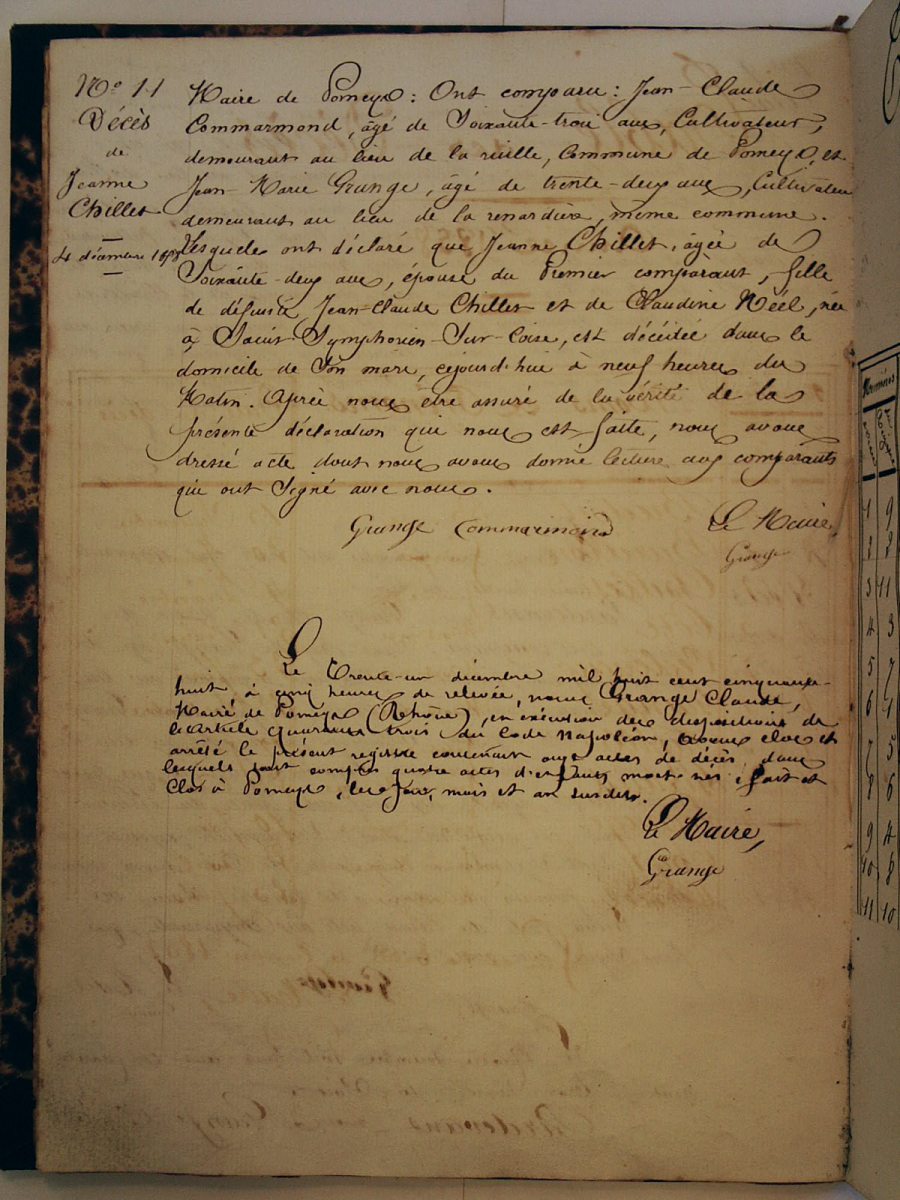 N° 11
Décès
de
Jeanne
Chillet
4 décembre 1858
Maire de Pomeys : Ont comparu : Jean-Claude
Commarmond, âgé de Soixante-trois ans, Cultivateur,
demeurant au lieu de la riville, Commune de Pomeys, et
Jean-Marie Grange, âgé de trente-deux ans, Cultivateur
demeurant au lieu de la renardière, même commune.
Lesquels ont déclaré que Jeanne Chillet, âgée de
Soixante-deux ans, épouse du Premier comparant, fille
de défunts Jean-Claude Chillet et de Claudine Néel, née
à Saint-Symphorien-Sur-Coise, est décédée dans le
domicile de Son mari, cejourd'hui à neuf heures du
Matin. Après nous être assuré de la vérité de la
présente déclaration qui nous est faite, nous avons
dressé acte dont nous avons donné lecture aux comparants
qui ont Signé avec nous.
Grange Commarmond Le Maire,
Grange
Le Trente-un décembre mil huit cent cinquante-
huit à cinq heures de relevée, nous Grange Claude,
Maire de Pomeys (Rhône), en exécution des dispositions de
l'Article quarante trois du Code Napoléon, avons clos et
arrêté le présent registre contenant onze actes de décès, dans
lesquels sont compris quatre actes d'enfants mort-nés ; fait et
Clos à Pomeys, les jour, mois et an susdits.
Le Maire,
Grange
Numéros
1 9
2
3 11
4 3
5 7
6
7 5
8 6
9 4
10 8
11 10